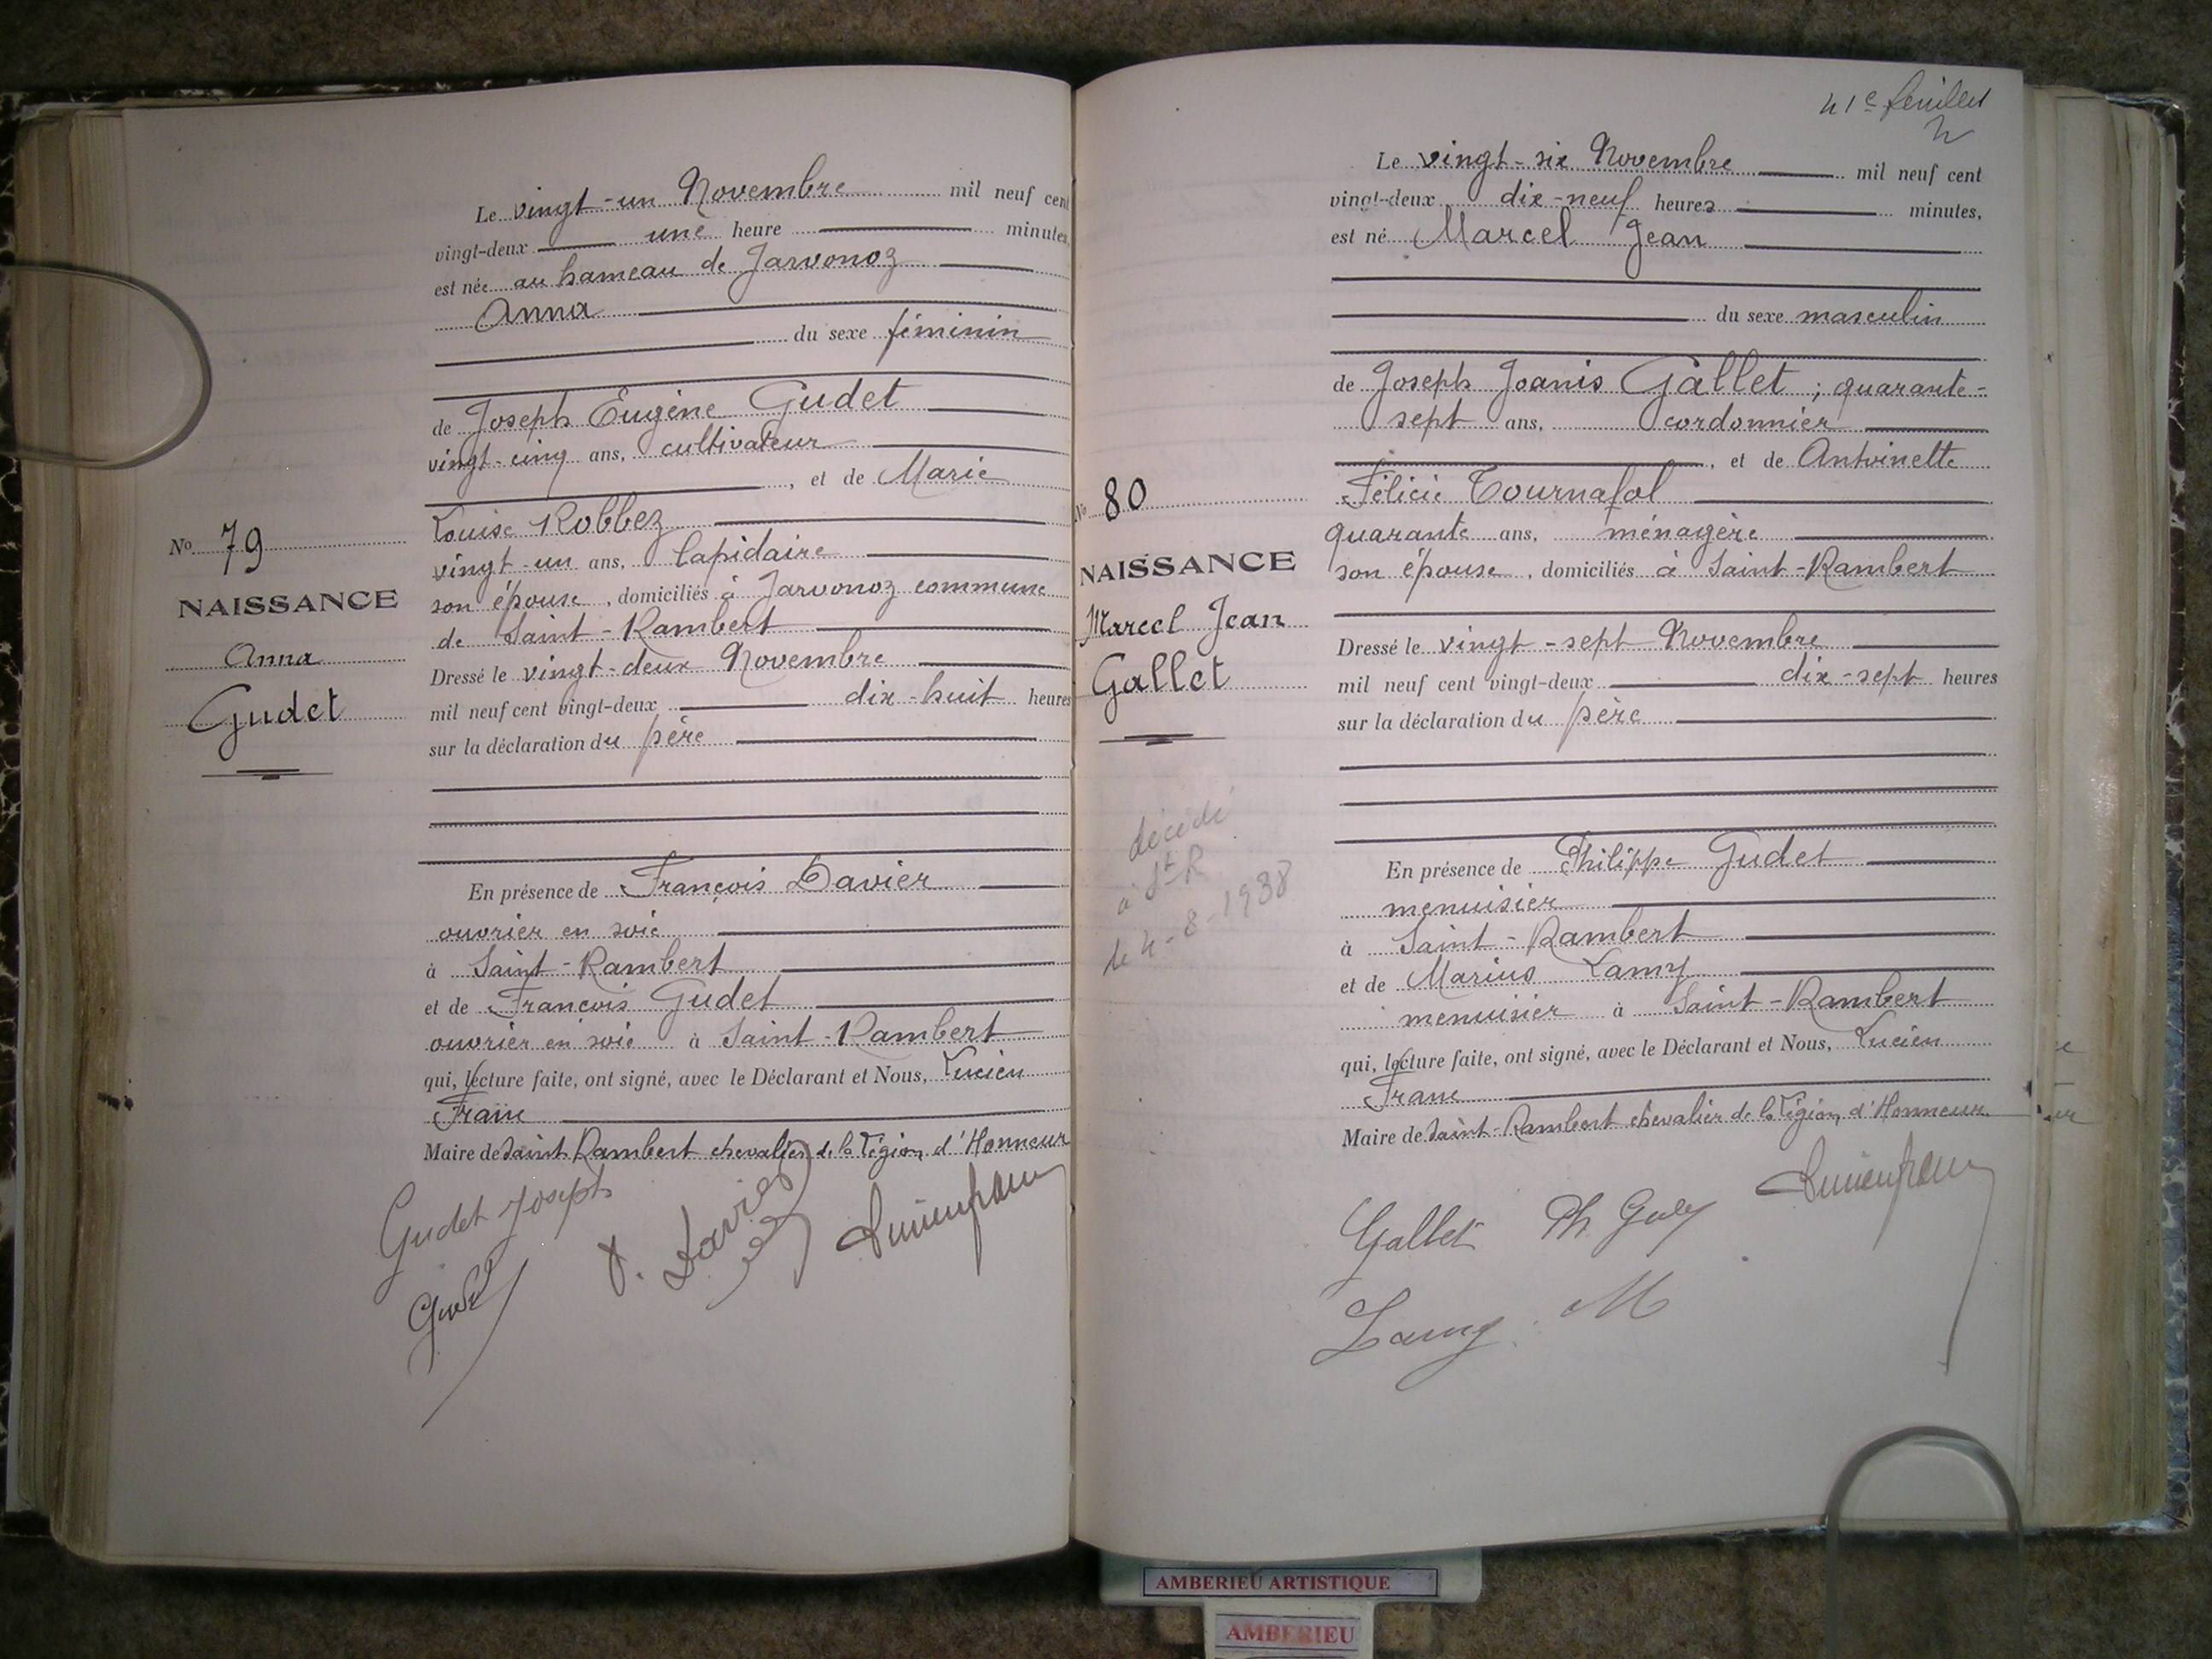 Le vingt-un Novembre mil neuf cent
vingt-deux une heure minutes,
est née au hameau de Javornoz
Anna
du sexe féminin
de Joseph Eugène Gudet
vingt-cinq ans, cultivateur
, et de Marie
Louise Robbez
vingt-un ans, lapidaire
son épouse, domiciliés à Javornoz commune
de Saint-Rambert
Dressé le vingt-deux Novembre
mil neuf cent vingt-deux dix-huit heures
sur la déclaration du père
En présence de François Davier
ouvrier en soie
à Saint-Rambert
et de François Gudet
ouvrier en soie à Saint-Rambert
qui, lecture faite, ont signé, avec le Déclarant et Nous, Lucien
Franc
Maire de Saint Rambert chevalier de la Légion d'Honneur
Gudet Joseph
Gudet
F. Davier
Lucien franc
No 79
NAISSANCE
Anna
Gudet
41e feuillet
Le vingt-six Novembre mil neuf cent
vingt-deux dix-neuf heures minutes,
est né Marcel Jean
du sexe masculin
de Joseph Joanis Gallet ; quarante-
sept ans, cordonnier
, et de Antoinette
Félicie Tournafol
quarante ans, ménagère
son épouse, domiciliés à Saint-Rambert
Dressé le vingt-sept Novembre
mil neuf cent vingt-deux dix-sept heures
sur la déclaration du père
En présence de Philippe Gudet
menuisier
à Saint-Rambert
et de Marius Lamy
menuisier à Saint-Rambert
qui, lecture faite, ont signé, avec le Déclarant et Nous, Lucien
Franc
Maire de Saint-Rambert chevalier de la Légion d'Honneur
Gallet
Lucien franc
Lamy M
No 80
NAISSANCE
Marcel Jean
Gallet
décédé
à St R
le 4-8-1938
AMBERIEU ARTISTIQUE
AMBERIEU